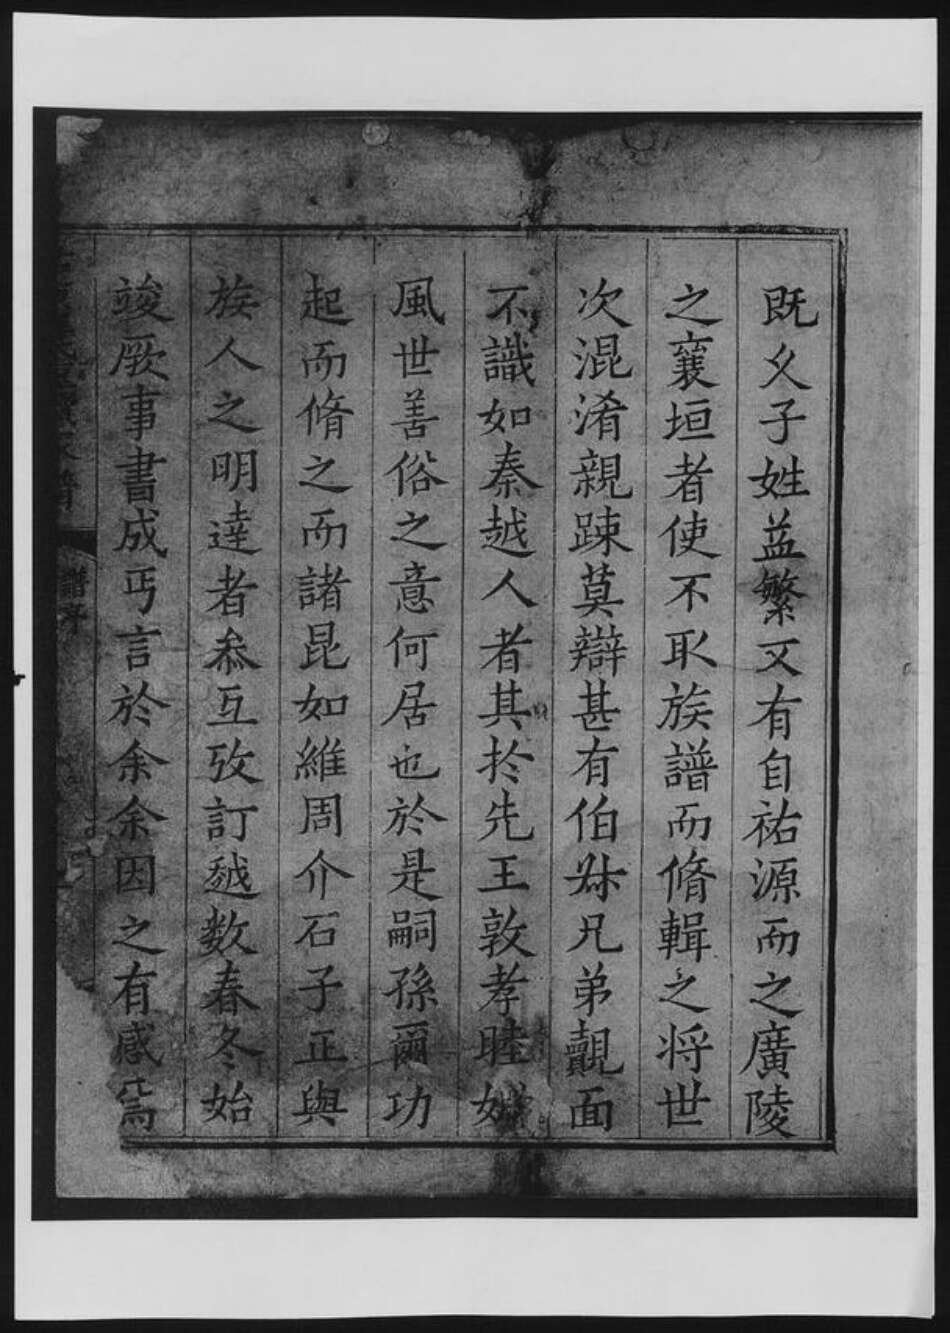 既久子姓益繁又有自祐源而之廣陵
之襄垣者使不取族譜而脩輯之将世
次混淆親踈莫辯甚有伯叔兄弟覿面
不識如秦越人者其於先王敦孝睦婣
風世善俗之意何居也於是嗣孫爾功
起而脩之而諸昆如維周介石子正與
族人之明達者叅互攷訂越数春冬始
竣厥事書成丐言於余余因之有感焉
譜序